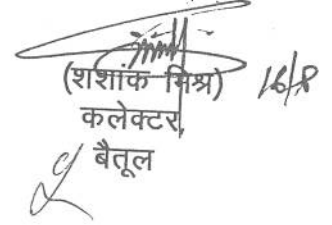 (शशांक मिश्र) 16/8
कलेक्टर,
बैतूल